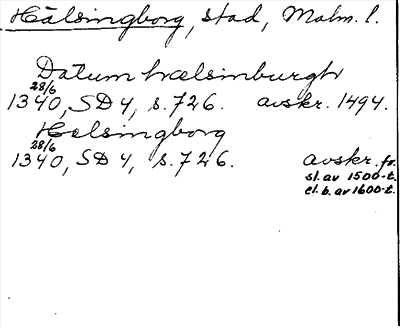 Hälsingborg, stad, Malm. l.
Datum hælsinburgh
1340 28/6, SD 4, s. 726. avskr. 1494.
Helsingborg
1340 28/6, SD 4, s. 726. avskr. fr.
sl. av 1500-t.
el. b. av 1600-t.